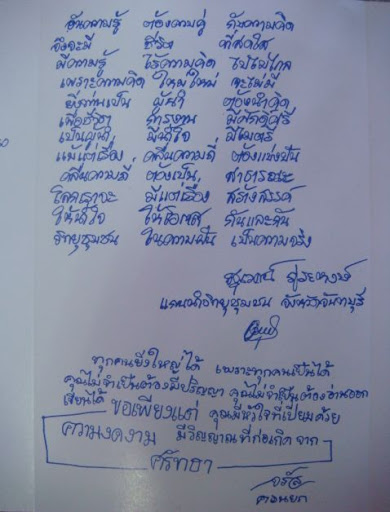 อันความรู้ ต้องควบคู่ กับความคิด
จึงจะมี ชีวิต ที่สดใส
มีความรู้ ไร้ความคิด ไปไม่ไกล
เพราะความคิด ใหม่ใหม่ จะไม่มี
ยิ่งท่านเป็น ผู้นำ ต้องนำคิด
เพื่อชีวิตา การงาน มีศักดิ์ศรี
เป็นผู้นำ มีน้ำใจ มีไมตรี
แม้แต่เรื่อง คลื่นความถี่ ต้องแบ่งปัน
คลื่นความถี่ ต้องเป็น สาธารณะ
โลกเราจะ มีแต่เรื่อง สร้างสรรค์
ให้น้ำใจ ให้โอกาส กันและกัน
วิทยุชุมชน ในความฝัน เป็นความจริง
แกนนำวิทยุชุมชน จังหวัดจันทบุรี
ทุกคนยิ่งใหญ่ได้ เพราะทุกคนเป็นได้
คุณไม่จำเป็นต้องมีปริญญา คุณไม่จำเป็นต้องอ่านออก
เขียนได้ ขอเพียงแต่ คุณมีหัวใจที่เปี่ยมด้วย
ความงดงาม มีวิญญาณที่ก่อเกิด จาก
ศรัทธา